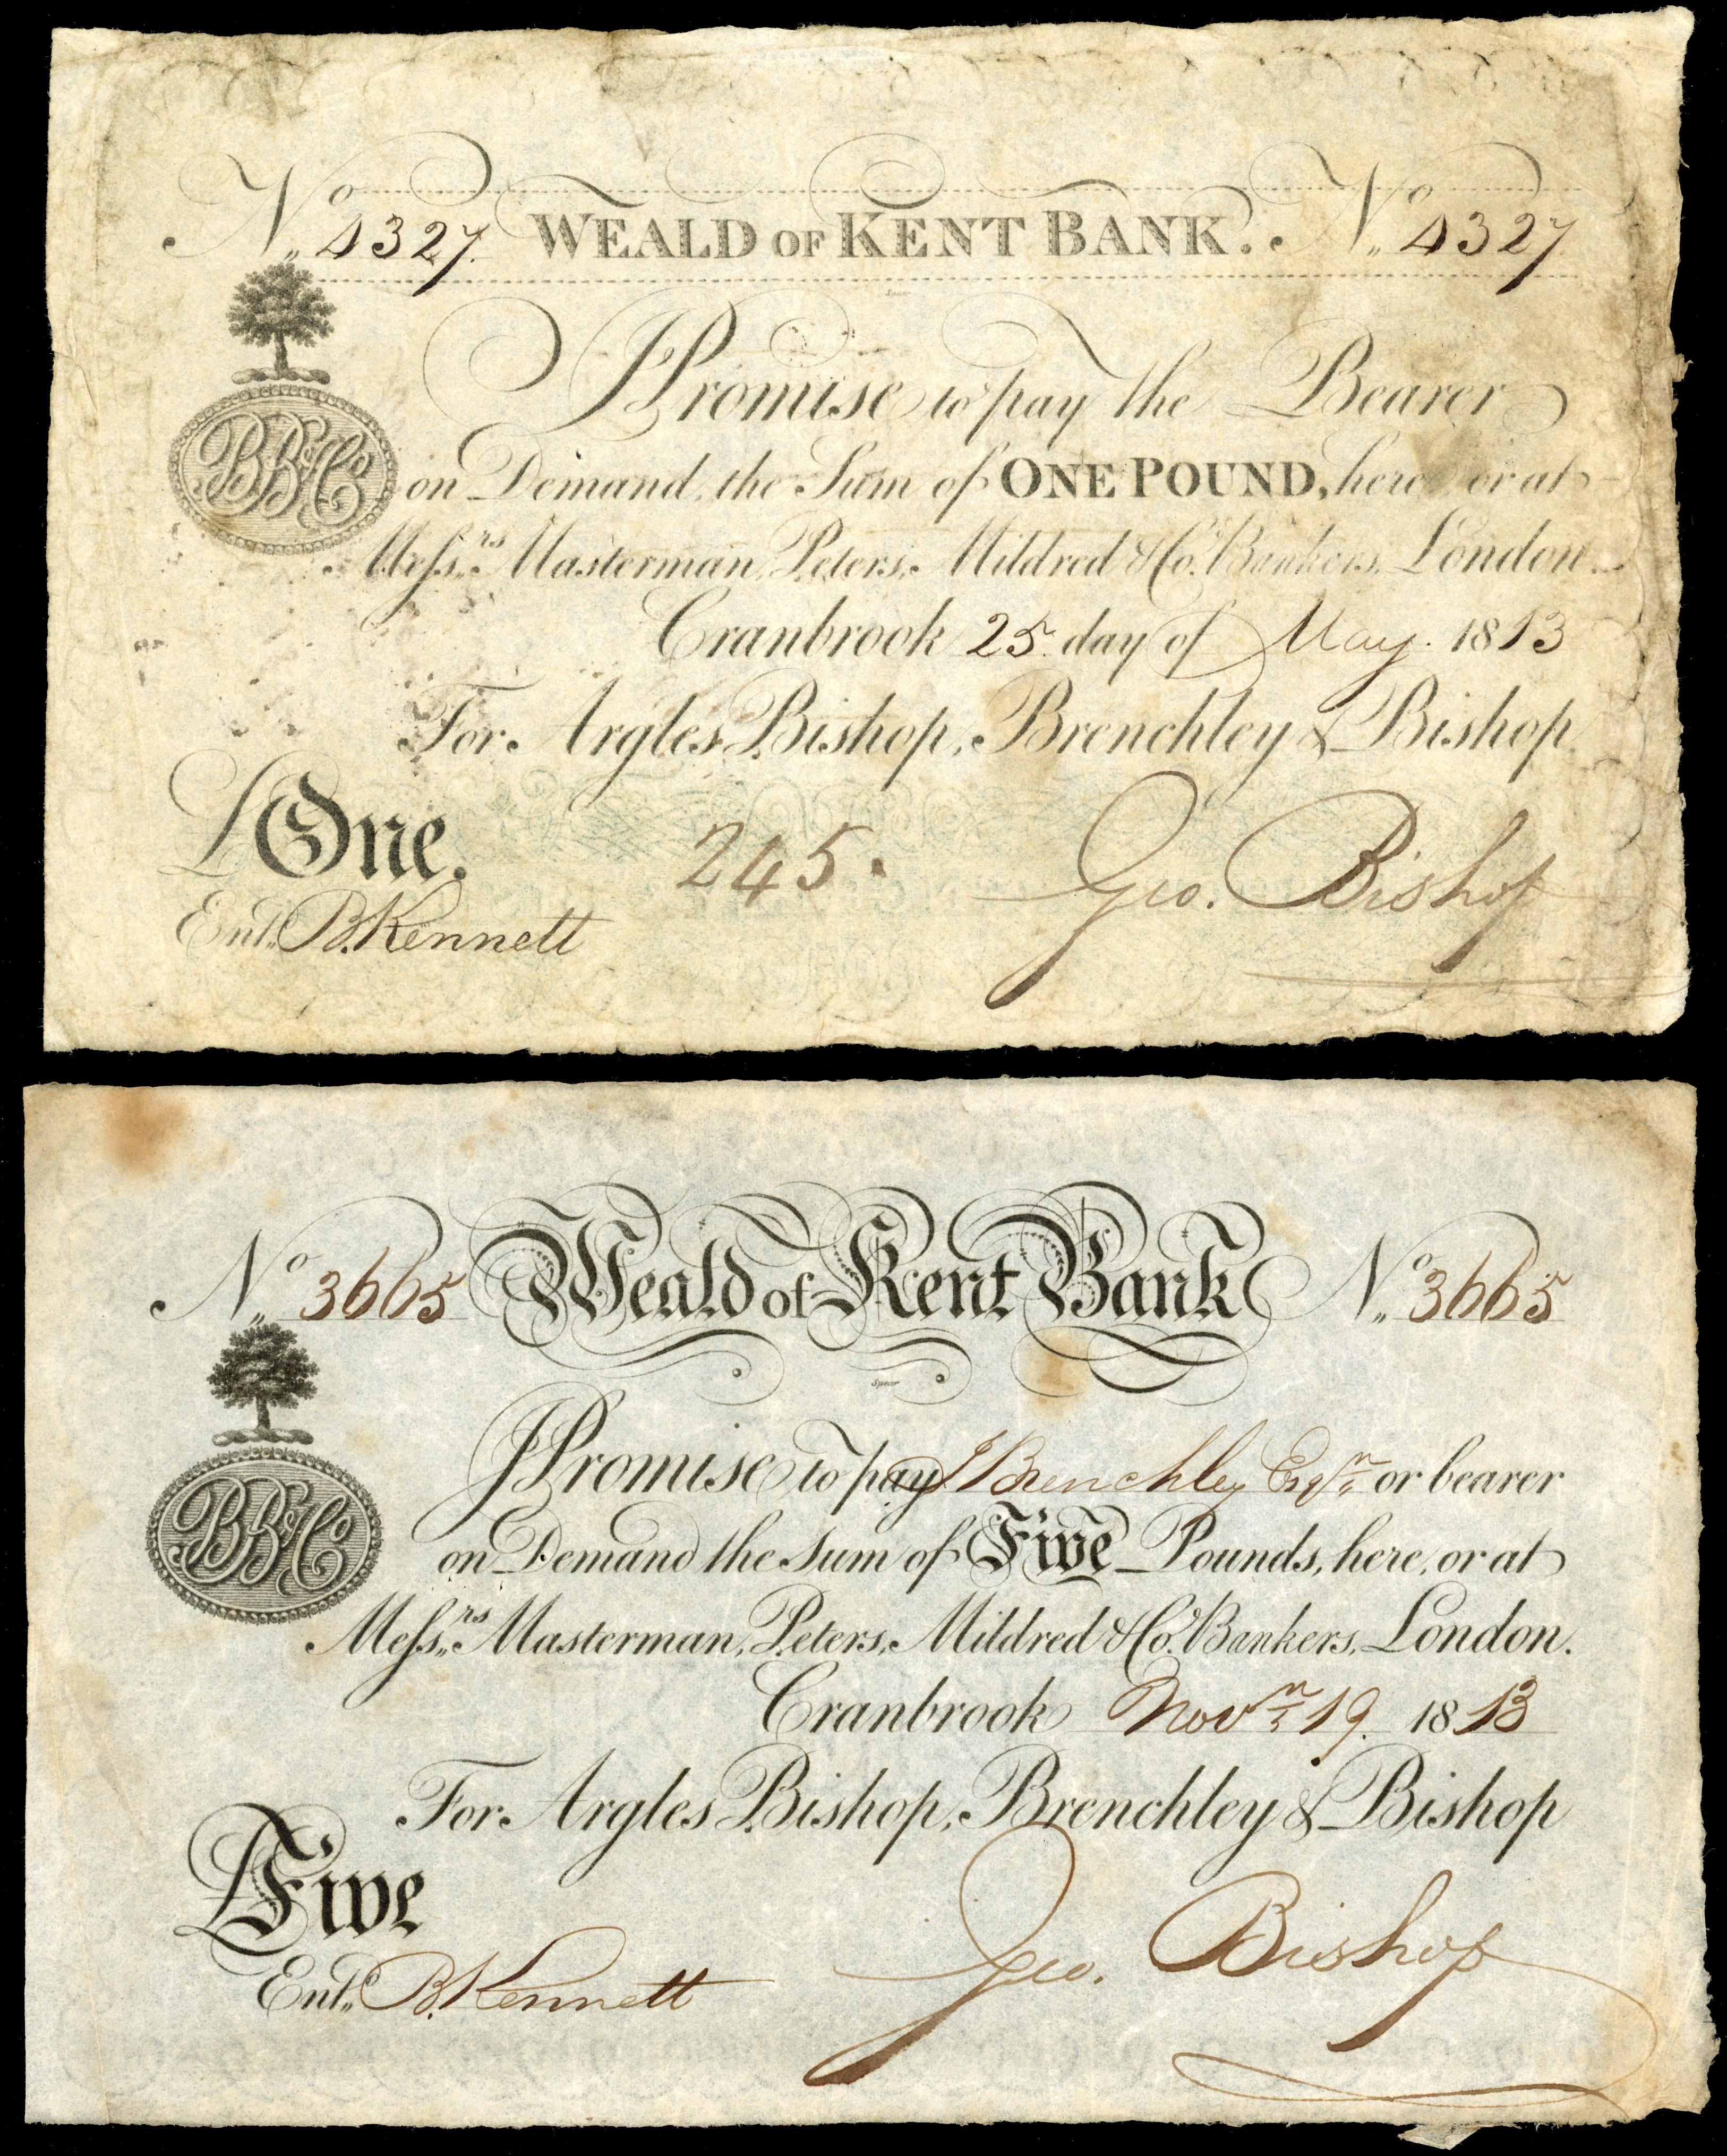 No. 4327. WEALD OF KENT BANK. No. 4327
Spear
I Promise to pay the Bearer
BB&Co on Demand, the Sum of ONE POUND, here or at
Messrs. Masterman, Peters, Mildred & Co. Bankers, London.
Cranbrook 25 day of May. 1813
For Argles, Bishop, Brenchley & Bishop.
£ One. 245. Geo. Bishop
Entd. B. Kennett
No. 3665 Weald of Kent Bank No. 3665
Spear
I Promise to pay J Brenchley Esqr. or bearer
BB&Co on Demand the sum of Five Pounds, here, or at
Messrs. Masterman, Peters, Mildred & Co. Bankers, London.
Cranbrook Novr. 19. 1813
For Argles, Bishop, Brenchley & Bishop
£ Five Geo. Bishop
Entd. B. Kennett